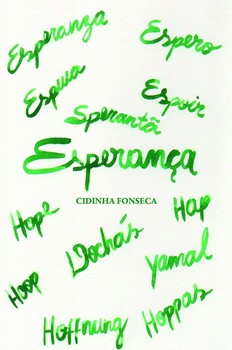 Esperanza
Espero
Espwa
Espoir
Sperantă
Esperança
CIDINHA FONSECA
Hope
Hap
Dóchas
Yamal
Hoop
Hoffnung
Hoppas